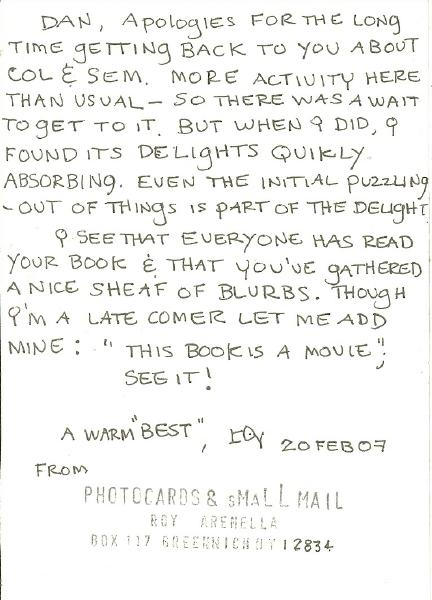 DAN, APOLOGIES FOR THE LONG
TIME GETTING BACK TO YOU ABOUT
COL & SEM. MORE ACTIVITY HERE
THAN USUAL – SO THERE WAS A WAIT
TO GET TO IT. BUT WHEN I DID, I
FOUND ITS DELIGHTS QUIKLY
ABSORBING. EVEN THE INITIAL PUZZLING
-OUT OF THINGS IS PART OF THE DELIGHT
I SEE THAT EVERYONE HAS READ
YOUR BOOK & THAT YOU'VE GATHERED
A NICE SHEAF OF BLURBS. THOUGH
I'M A LATE COMER LET ME ADD
MINE: "THIS BOOK IS A MOVIE";
SEE IT!
A WARM "BEST", ROY 20 FEB 07
FROM
PHOTOCARDS & SMALL MAIL
ROY ARENELLA
BOX 117 GREENWICH NY 12834